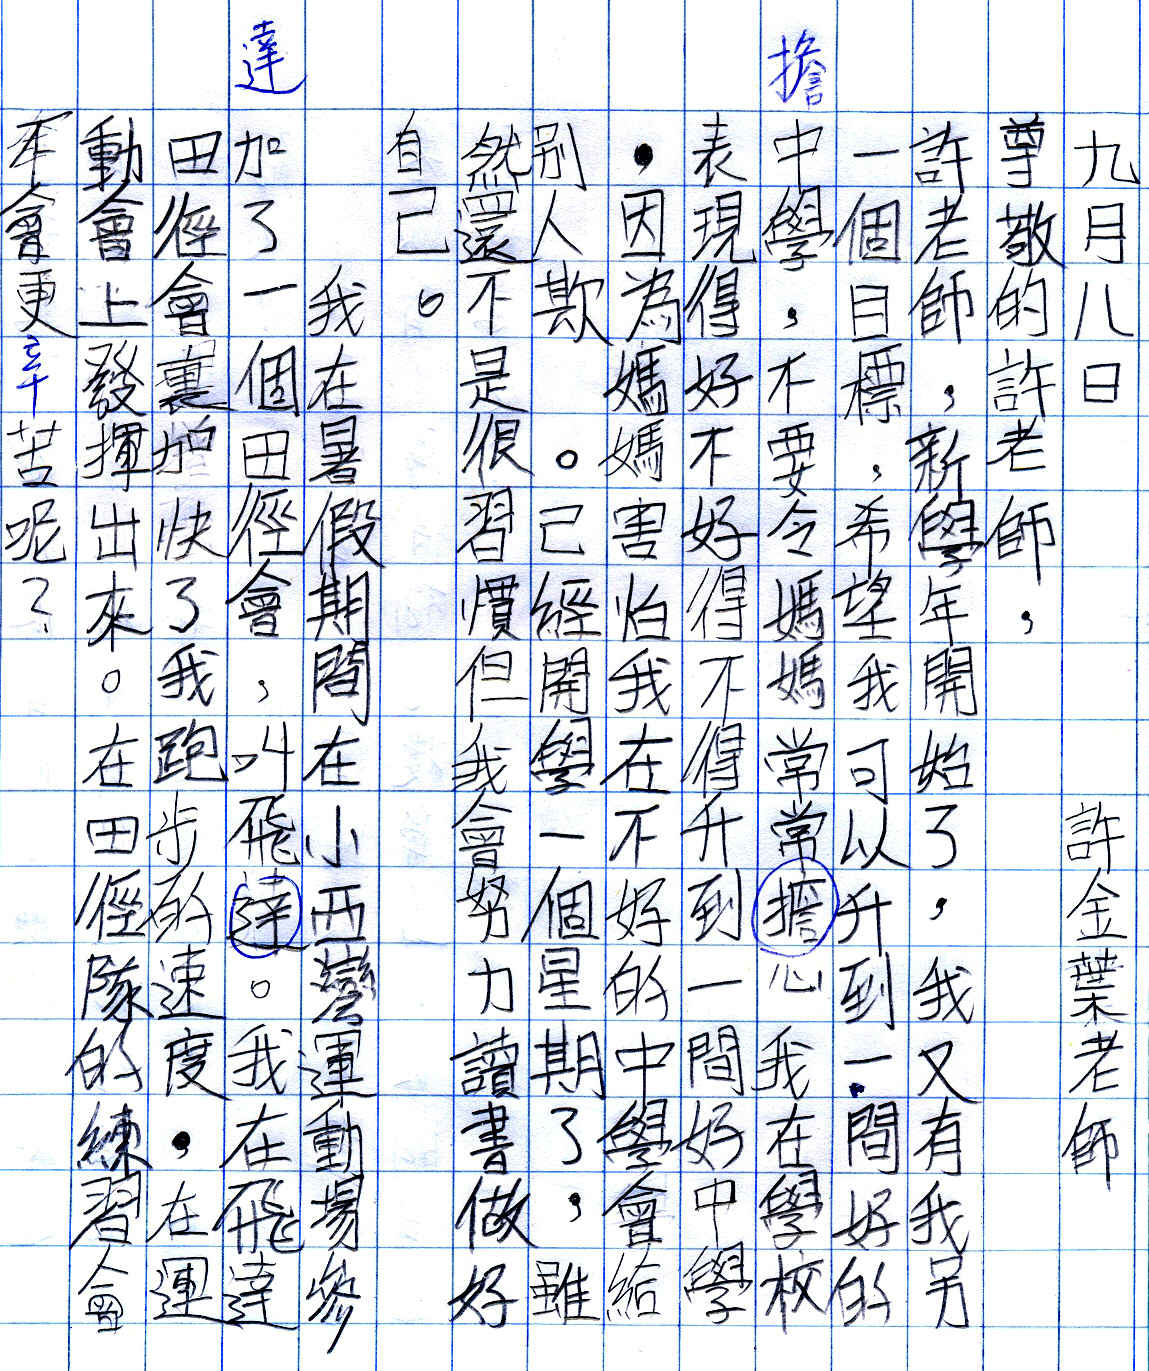 九月八日　許金葉老師
尊敬的許老師，
許老師，新學年開始了，我又有我另
一個目標，希望我可以升到一間好的
擔
中學，不要令媽媽常常擔心我在學校
表現得好不好得不得升到一間好中學
，因為媽媽害怕我在不好的中學會給
別人欺。己經開學一個星期了，雖
然還不是很習慣但我會努力讀書做好
自己。
我在暑假期間在小西灣運動場參
達
加了一個田徑會，叫飛達。我在飛達
田徑會裏加快了我跑步的速度，在運
動會上發揮出來。在田徑隊的練習會
不會更辛苦呢？